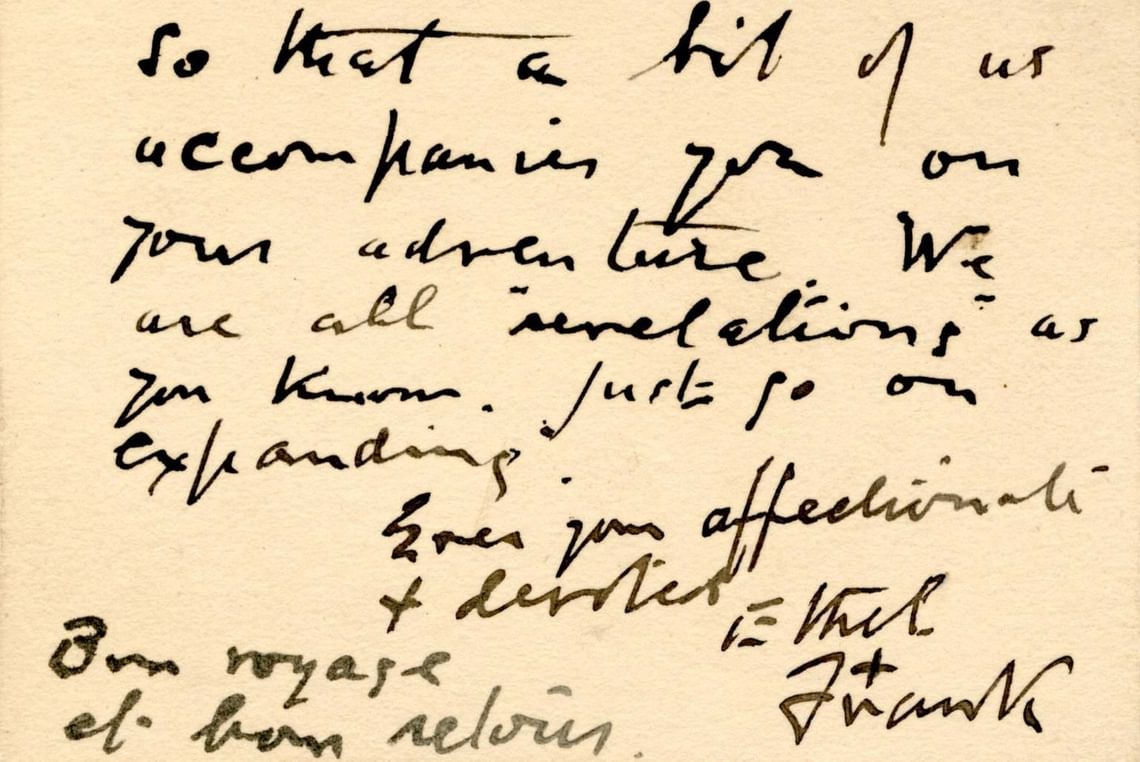 So that a bit of us
accompanies you on
your adventure. We
are all "revelations" as
you know. Just go on
"expanding".
Ever your affectionate
+ devoted Ethel
+
Frank
Bon voyage
et bon retour.